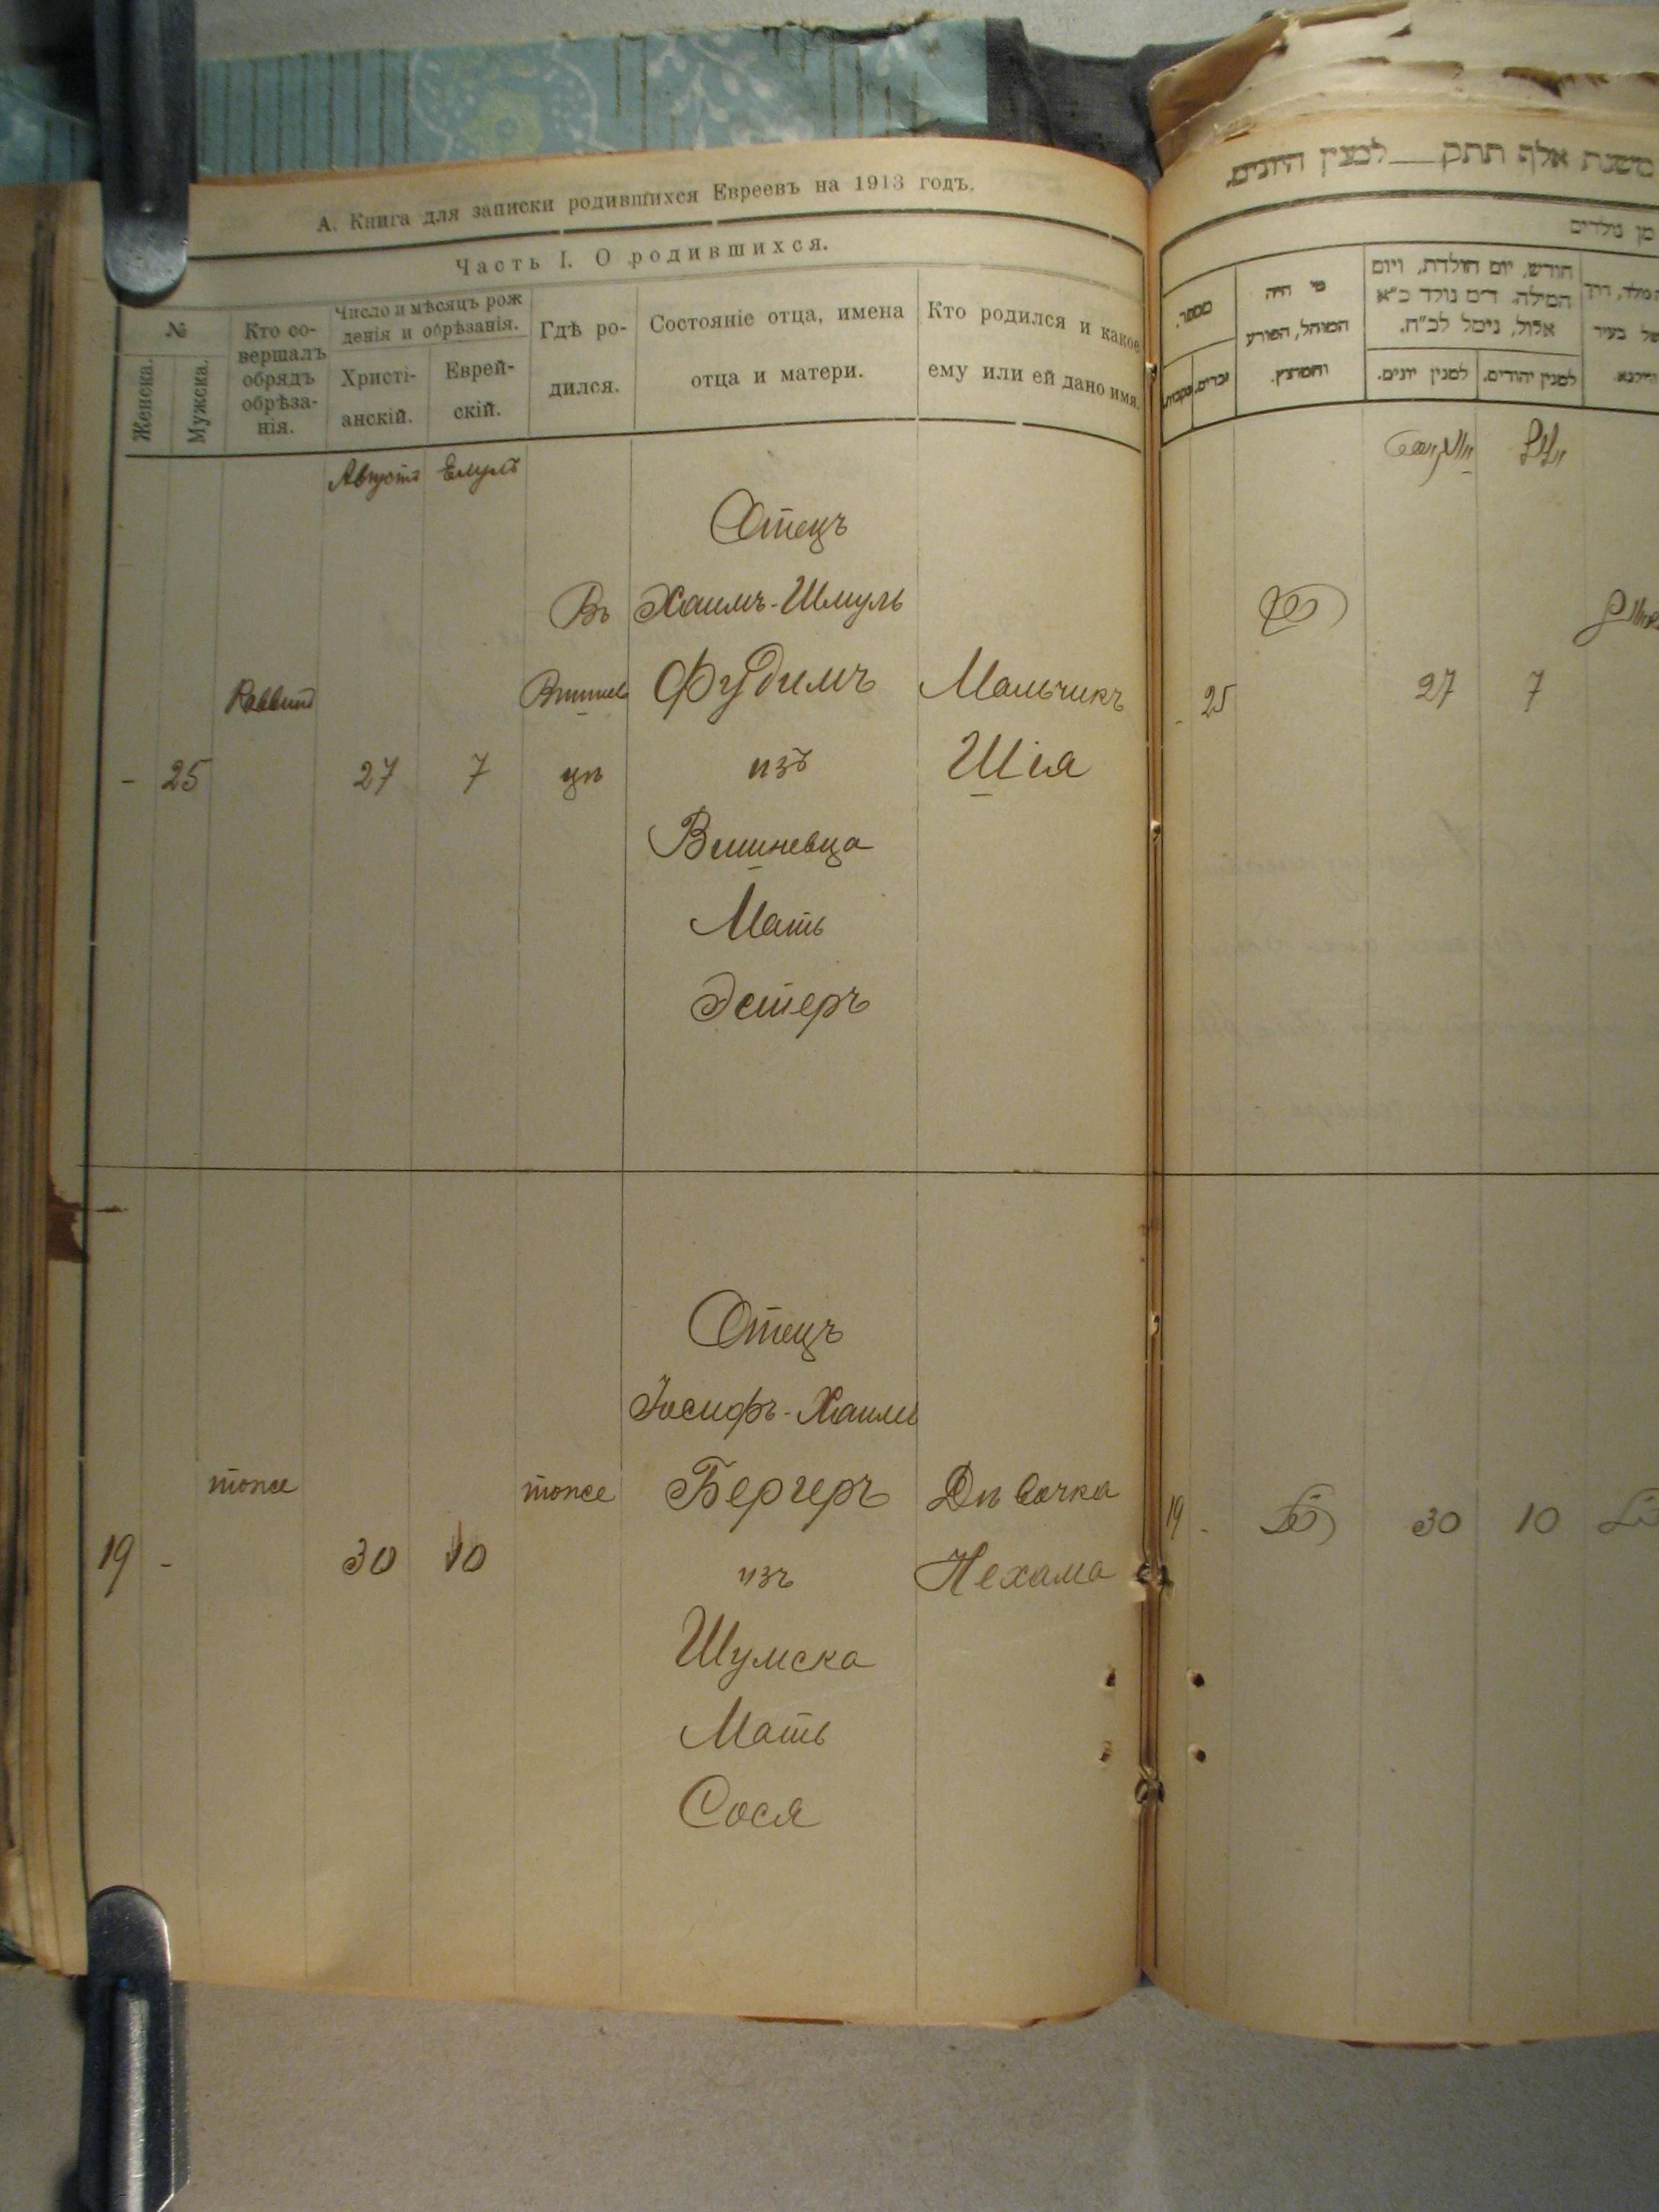 А. Книга для записки родившихся Евреевъ на 1913 годъ.
Часть I. О родившихся.
№
Женска.
Мужска.
Кто со-
вершалъ
обрядъ
обрѣза-
нія.
Число и мѣсяцъ рож
денія и обрѣзанія.
Христі-
анскій.
Еврей-
скій.
Гдѣ ро-
дился.
Состояніе отца, имена
отца и матери.
Кто родился и какое
ему или ей дано имя.
Августъ Елулъ
Отецъ
Въ Хаимъ-Шмуль
Раввинъ Вишнев Фудимъ Мальчикъ
- 25 27 7 цѣ изъ Шія
Вишневца
Мать
Эстеръ
Отецъ
Іосифъ-Хаимъ
тоже тоже Бергеръ Дѣвочка
19 - 30 10 изъ Нехама
Шумска
Мать
Сося
משנת אלף תתק__למנין היונים.
מן נולדים
מספר.
זכרים.
נקבות.
מי היה
המוהל, הפורע
והמוצץ.
חודש, יום הולדת, ויום
המילה. ד״מ נולד כ״א
אלול, נימל לכ״ח.
למנין יונים.
למנין יהודים.
אויגוסט אלול
- 25 27 7
19 - 30 10